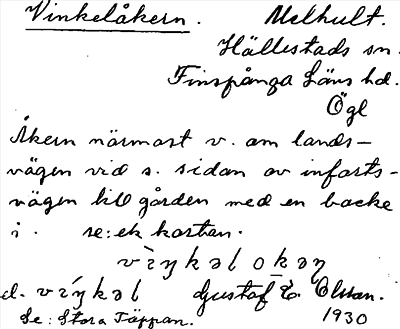 Vinkelåkern. Melhult.
Hällestads sn.
Finspånga Läns hd.
Ögl
Åkern närmast v. om lands-
vägen vid s. sidan av infarts-
vägen till gården med en backe
i. se: ek kartan.
vìŋkəlokəṇ
el. víŋkəl Gustaf E. Olsson.
Se: Stora Täppan. 1930